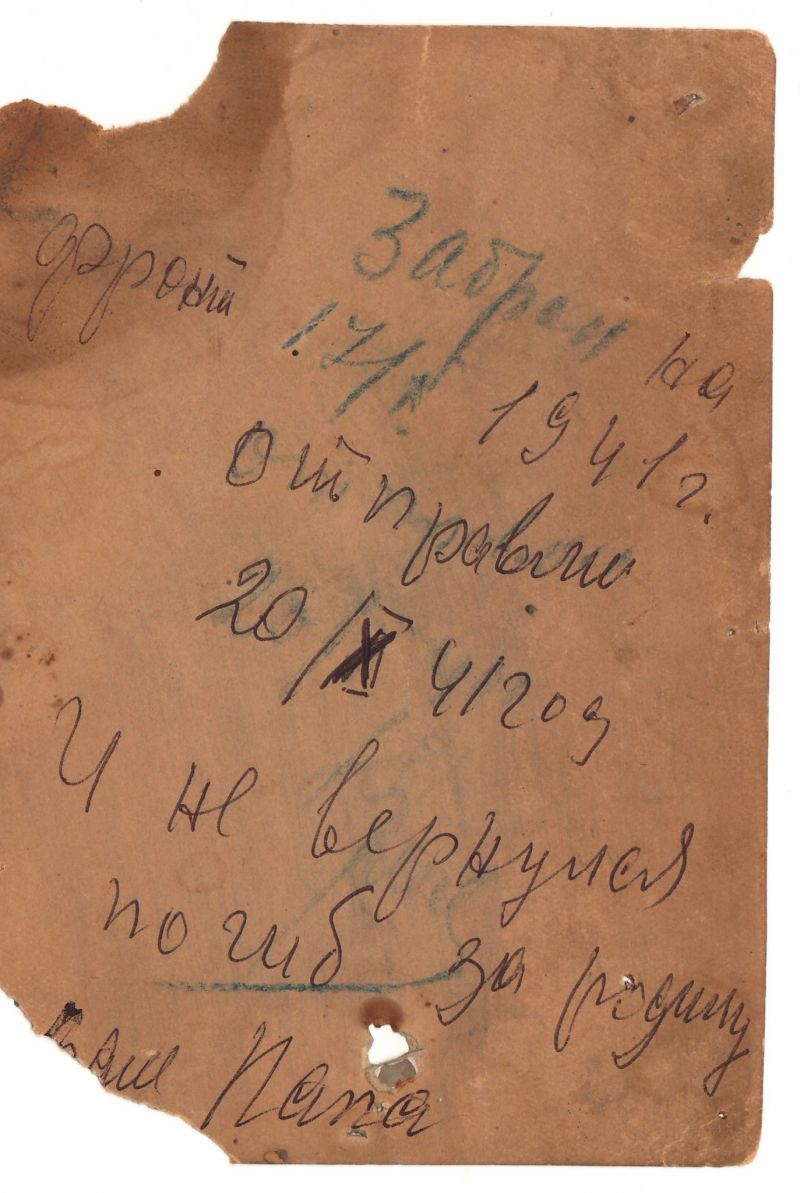 Забран на
фронт
17/X 1941г.
отправлен
20/XI 41 год
И не вернулся
погиб за родину
ваш Папа